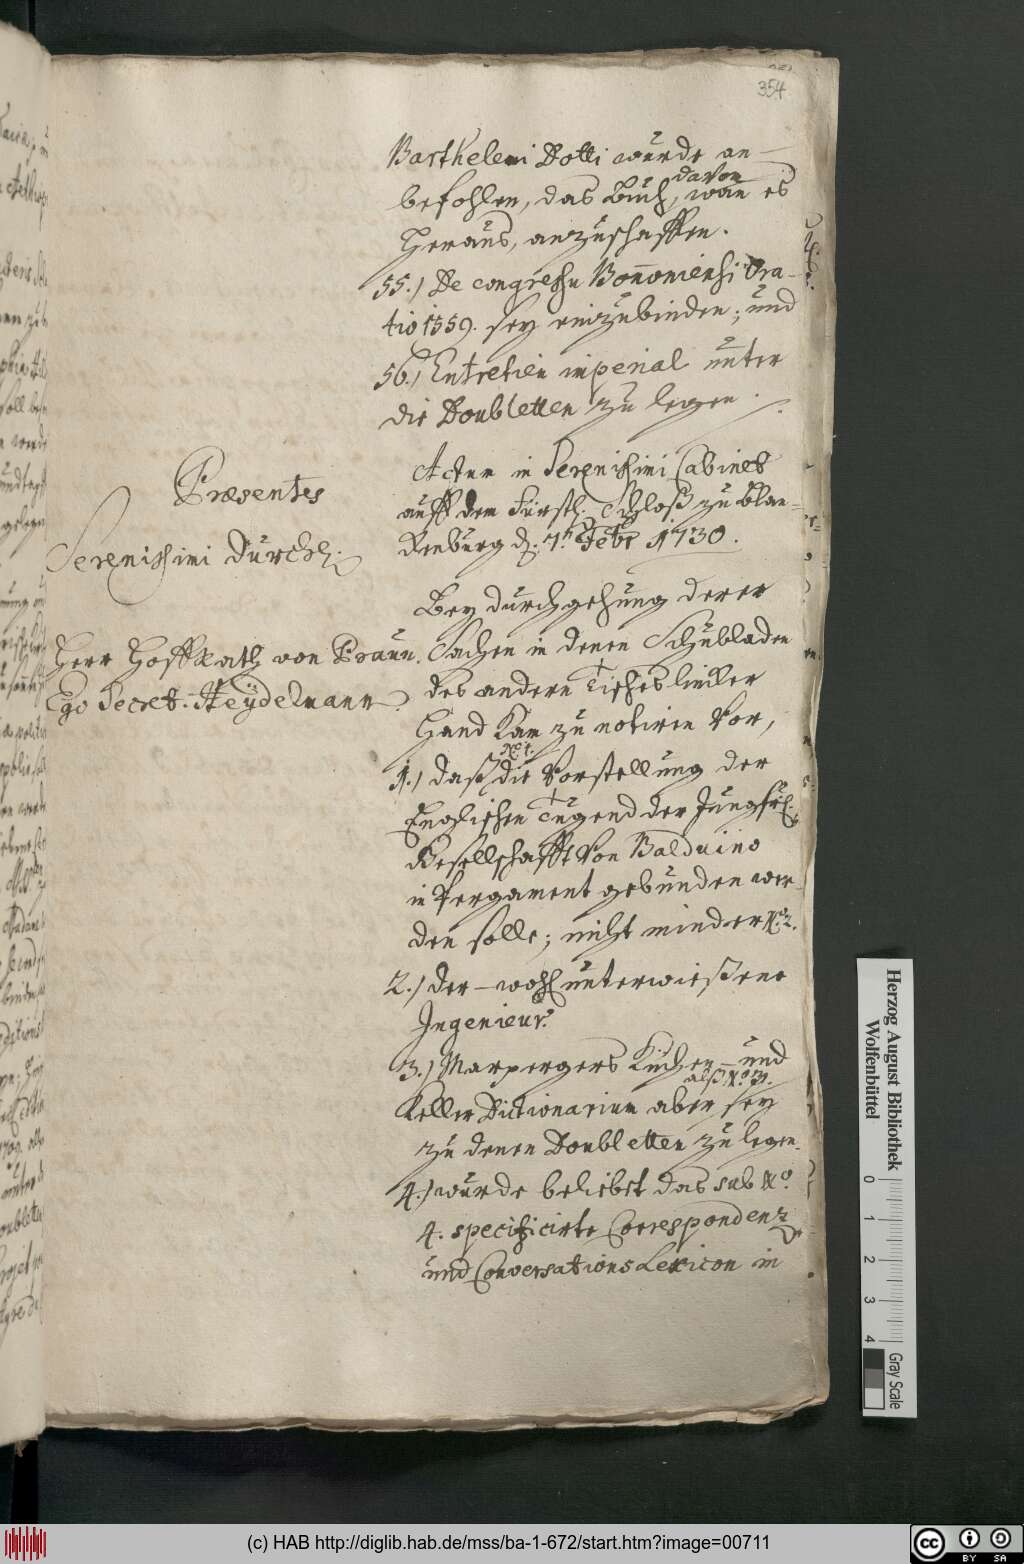 354
Barthelemi Dotti wurde an-
befohlen, das Buch, davon, wan es
heraus, anzuschaffen.
55.) De congressu Bononiensi Ora-
tio 1559. sey einzubinden; und
56.) Entretien imperial unter
die Doubletten zu legen.
Actum in Serenissimi Cabinet
auff dem Fürstl. Schloß zu Blan-
kenburg d. 7. Febr 1730.
Præsentes
Serenissimi Durchl.
Herr Hoffrath von Praun.
Ego Secret. Heÿdelmann
Bey durchgehung derer
Sachen in denen Schubladen
des andern Tisches lincker
Hand kam zu notiren vor,
1.) daß No. 1. die Vorstellung der
Englischen Tugend der Jungfrl.
Gesellschafft von Balduino
in Pergament gebunden wer-
den solle; nicht minder No. 2.
2.) der wohl unterwießene
Ingenieur.
3.) Marpergers Küchen- und
Keller Dictionarium aber, alß No. 3. sey
zu denen Doubletten zu legen.
4.) wurde beliebet das sub No.
4. specificirte Correspondenz
und Conversations Lexicon in
Herzog August Bibliothek
Wolfenbüttel
0 1 2 3 4
Gray Scale
(c) HAB http://diglib.hab.de/mss/ba-1-672/start.htm?image=00711
cc BY SA